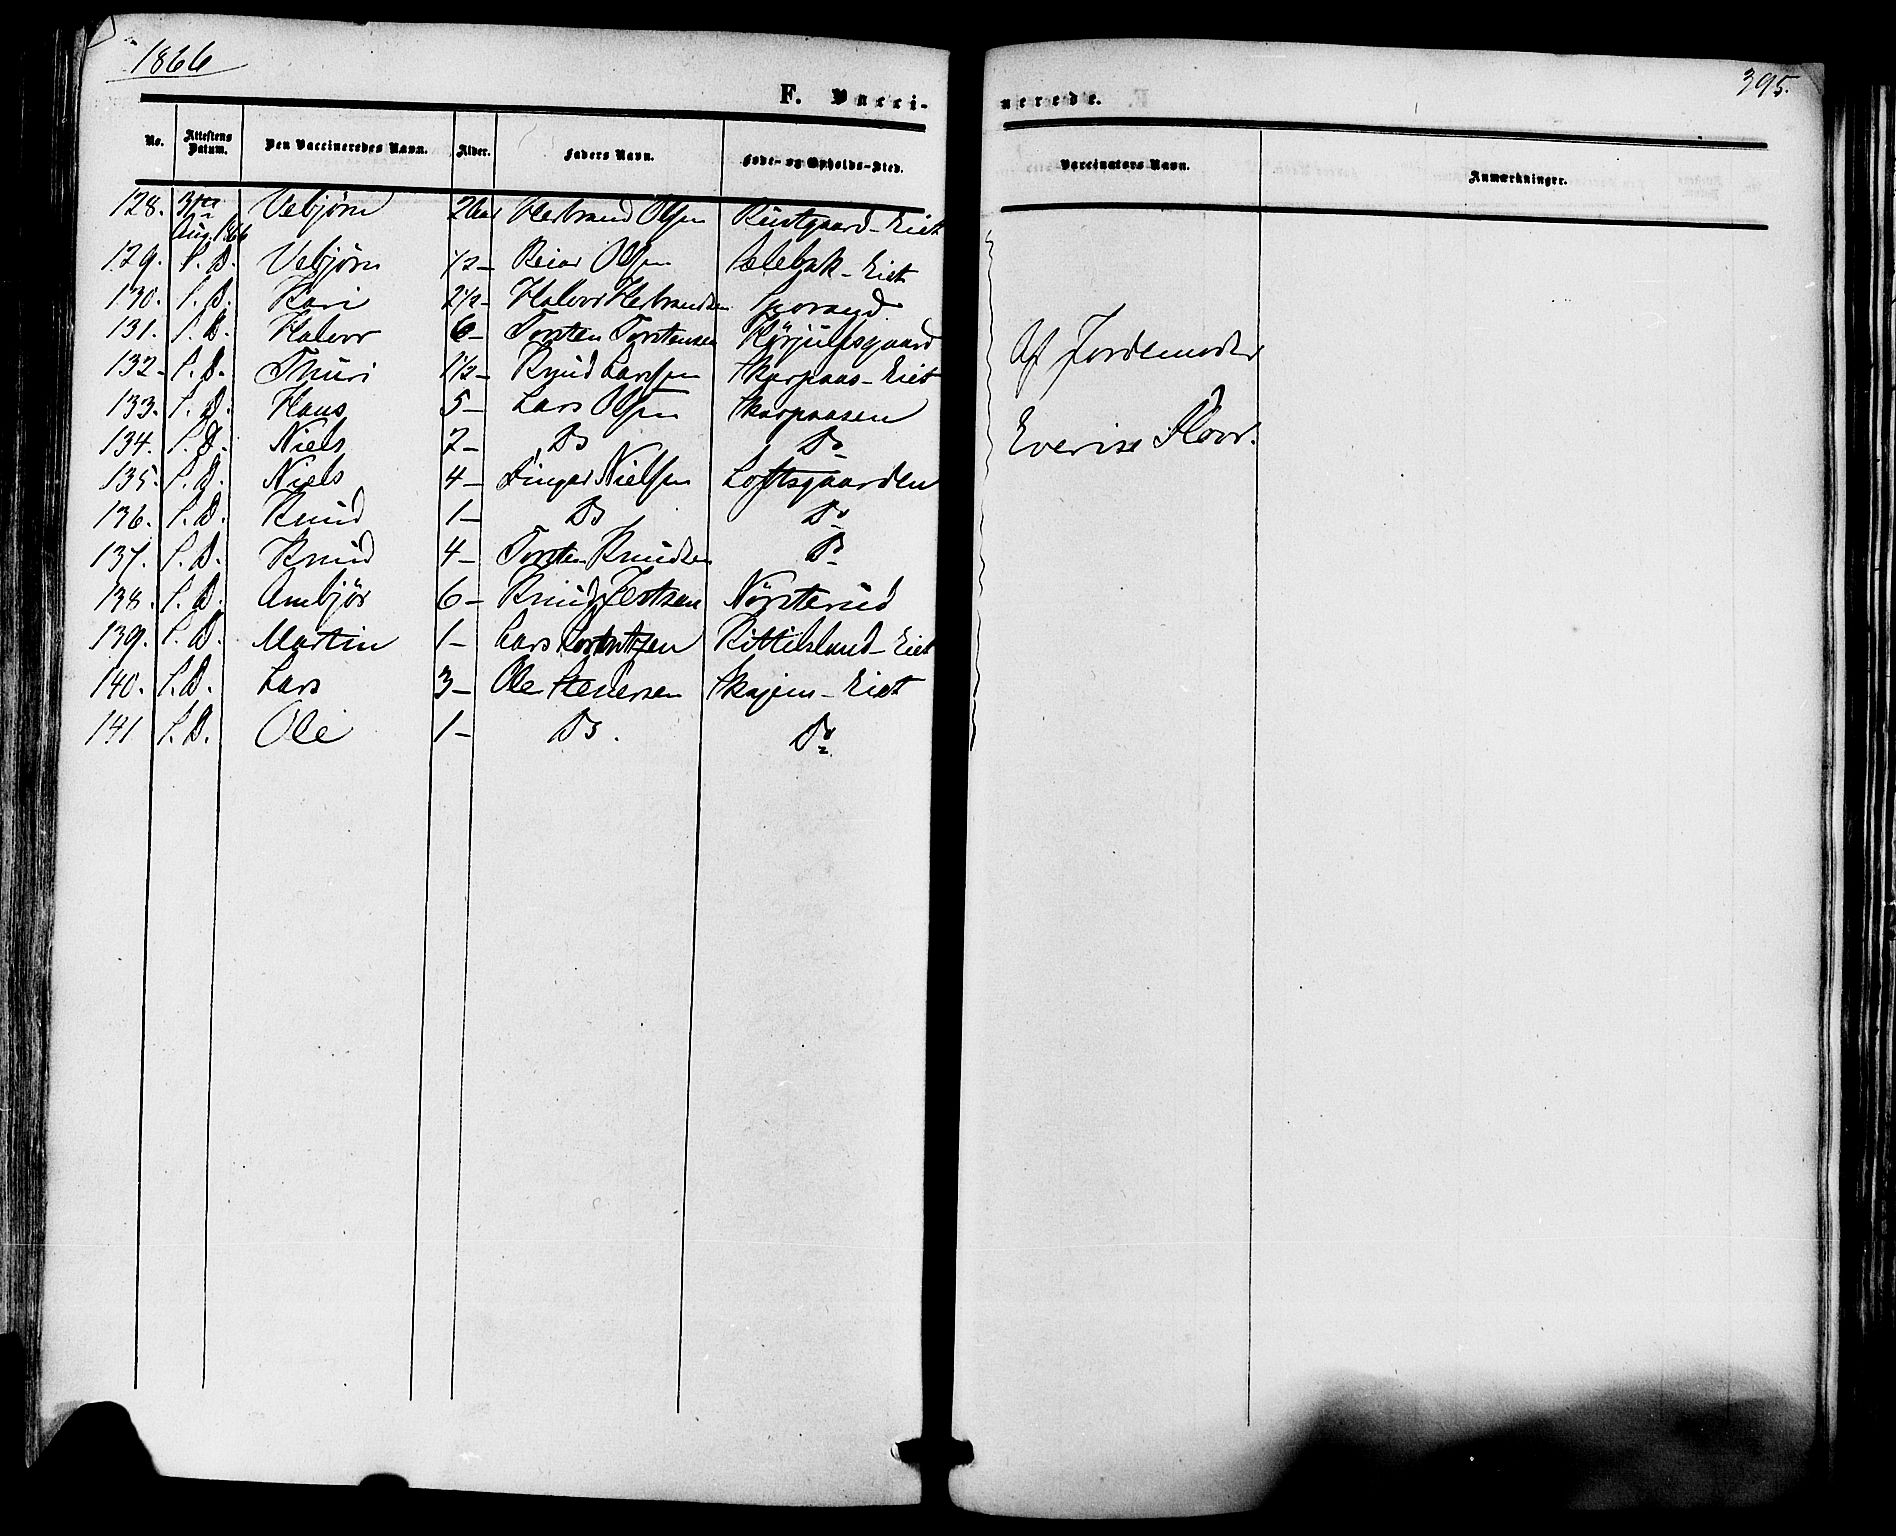 1866
395.
F. Vacci-
nerede.
No. Attestens Datum. Den Vaccineredes Navn. Alder. Faders Navn. Føde- og Opholds-Sted. Vaccinators Navn. Anmærkninger.
128. 3die Aug. 1866 Vebjørn 2 Aar Herbrand Olsen Rustgaard-Eiet
129. S. D. Vebjørn 1/2 - Reiar Olsen Bælebak-Eiet
130. S. D. Kari 2 1/2 - Halvor Herbrandsen
131. S. D. Halvor 6 - Torsten Torstensen Kørjulfsgaard
132. S. D. Thuri 1 1/2 - Knud Larsen Skarpaas-Eiet
133. S. D. Hans 5 - Lars Olsen Skarpaasen
134. S. D. Niels 2 - Do Do
135. S. D. Niels 4 - Fingar Nielsen Loftsgaarden
136. S. D. Knud 1 - Do Do
137. S. D. Knud 4 - Torsten Knudsen Do
138. S. D. Ambjør 6 - Knud Jestsen Nørsterud
139. S. D. Martin 1 - Lars Lorentzen Kittilsland-Eiet
140. S. D. Lars 3 - Ole Stenersen Skajem-Eiet
141 S. D. Ole 1 - Do. Do
Af Jordemoder
Everise Floor.